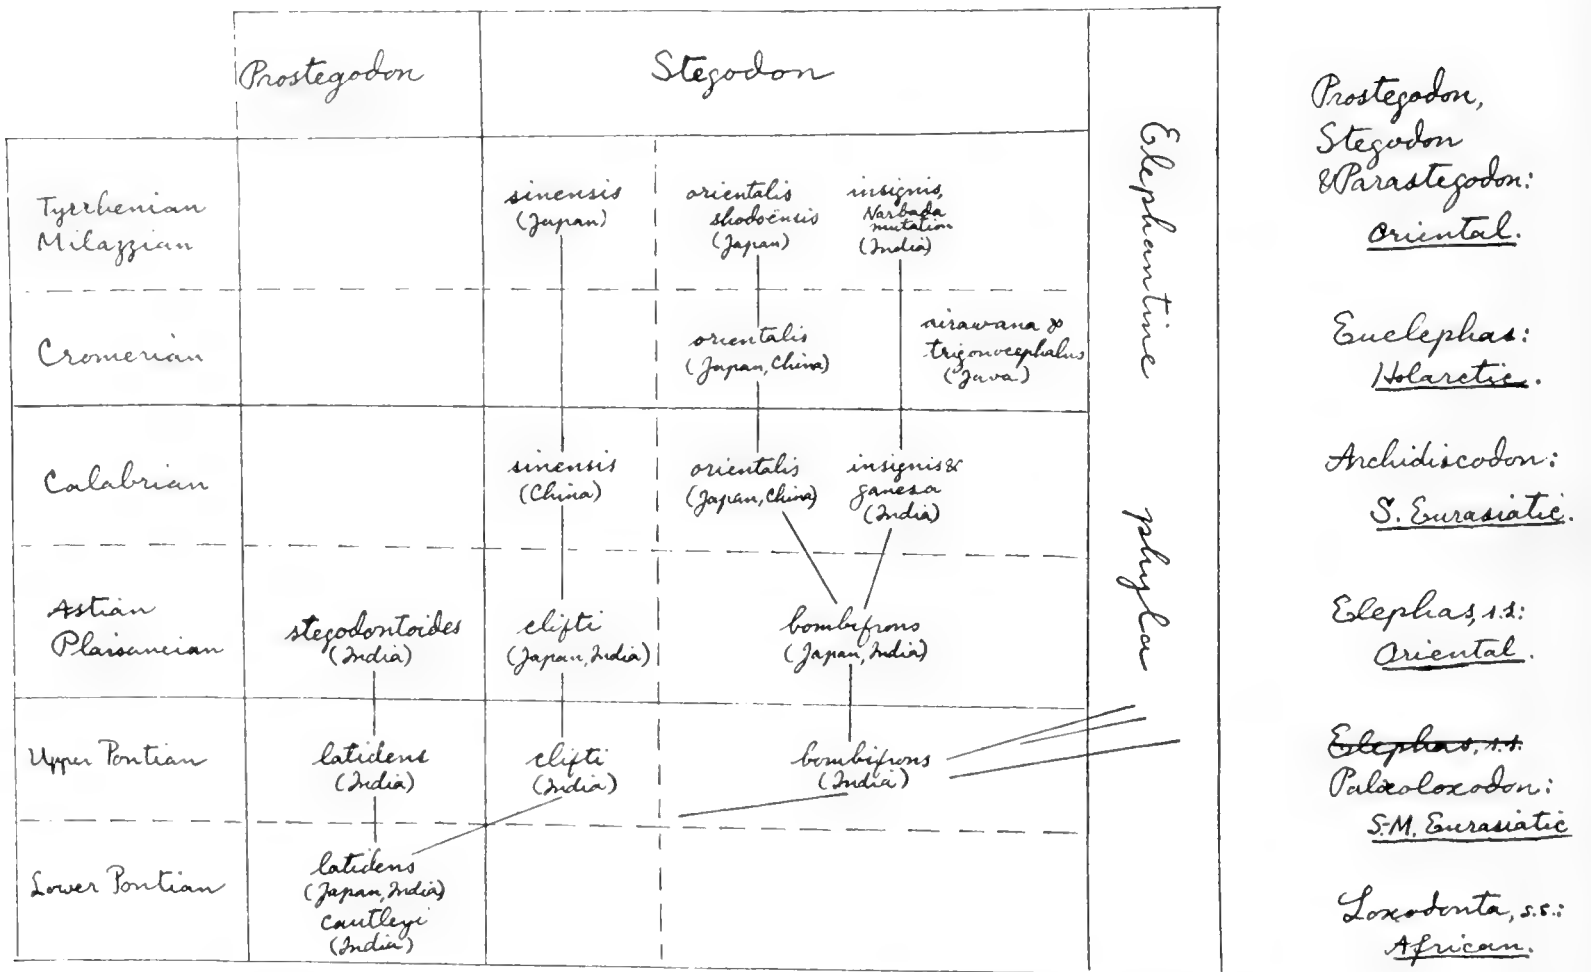 Prostegodon
Stegodon
Tyrrhenian
Milazzian
sinensis
(Japan)
orientalis
shodoënsis
(Japan)
insignis,
Narbada
mutation
(India)
Cromerian
orientalis
(Japan, China)
airawana &
trigonocephalus
(Java)
Calabrian
sinensis
(China)
orientalis
(Japan, China)
insignis &
ganesa
(India)
Astian
Plaisancian
stegodontoides
(India)
clifti
(Japan, India)
bombifrons
(Japan, India)
Upper Pontian
latidens
(India)
clifti
(India)
bombifrons
(India)
Lower Pontian
latidens
(Japan, India)
cautleyi
(India)
Elephantine phyla
Prostegodon,
Stegodon
& Parastegodon:
Oriental.
Euelephas:
Holarctic.
Archidiscodon:
S. Eurasiatic.
Elephas, s.s:
Oriental.
Elephas, s.s.
Palæoloxodon:
S-M. Eurasiatic
Loxodonta, s.s.:
African.